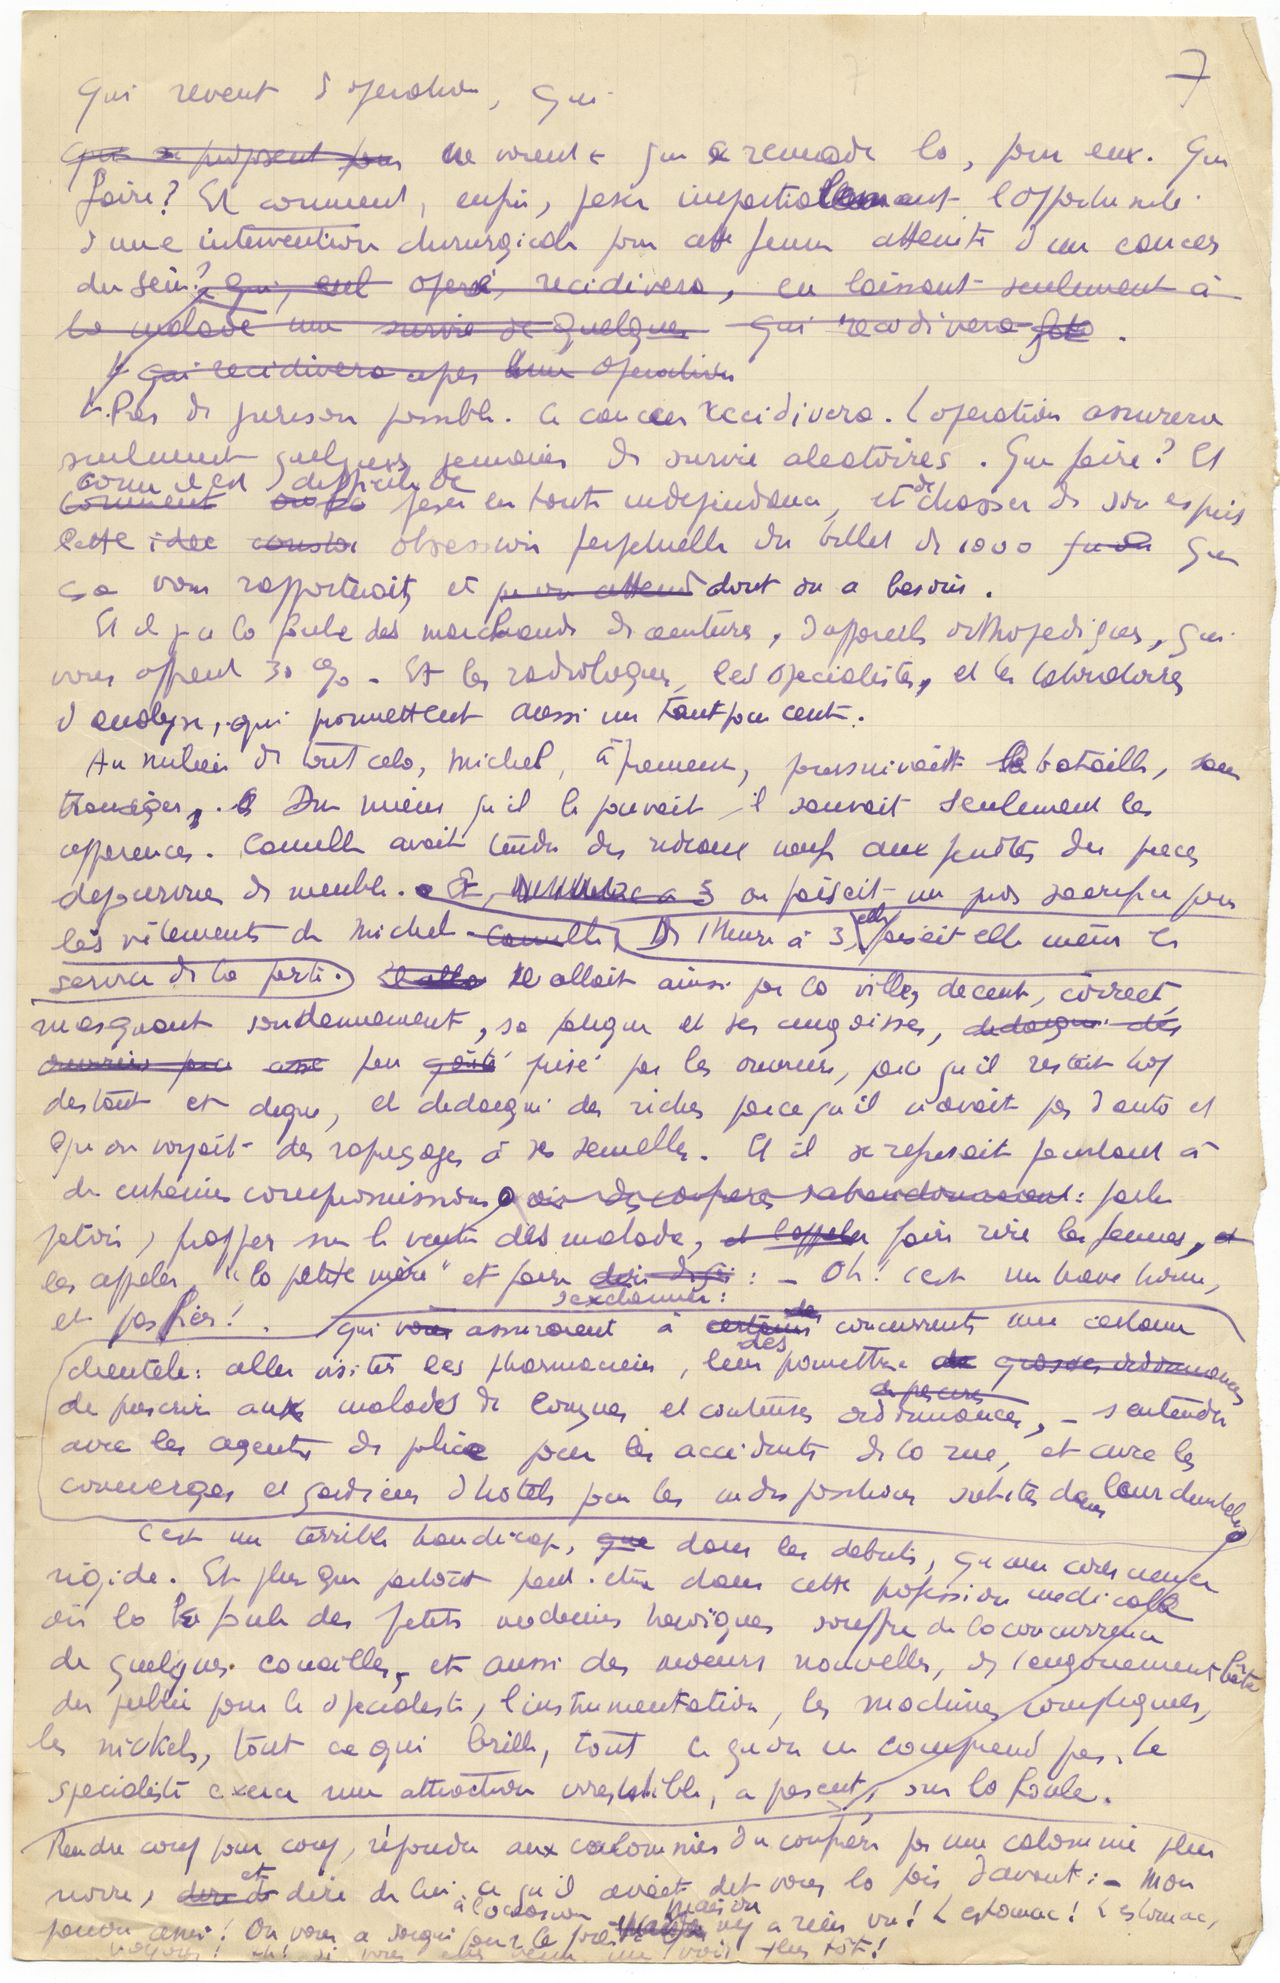 7
Qui revent d'operation, qui
ne voient que ce remede là, pour eux. Que
faire? Et comment, enfin, peser impartialement l'opportunité
d'une intervention chirurgicale pour cette femme atteinte d'un cancer
du sein? qui, est operé, recidivera, en laissant seulement à
la malade une survie de quelques qui recidivera
qui recidivera apres une operation
Pas de guerison possible. Ce cancer recidivera. L'operation assurera
seulement quelques semaines de survie aleatoires. Que faire? Et
comme il est difficile de
comment peser en toute independance, et de chasser de son esprit
cette idee obsession perpetuelle du billet de 1000 que
ça vous rapporterait, et dont on a besoin.
Et il y a la foule des marchands de ceintures, d'appareils orthopediques, qui
vous offrent 30 %. Et les radiologues, les specialistes, et les laboratoires
d'analyse, qui promettent aussi un tant pour cent.
Au milieu de tout cela, Michel, âprement, poursuivait la bataille, sans
transiger. Du mieux qu'il le pouvait il sauvait seulement les
apparences. Camille avait tendu des rideaux neufs aux fenêtres des pieces
depourvues de meubles. on faisait un gros sacrifice pour
les vêtements de Michel Camille De 1 heure à 3, elle faisait elle même le
service de la porte. Il allait ainsi par la ville, decent, correct,
masquant sa fatigue et ses angoisses, dedaigné des
ouvriers peu peu goûté prisé par les ouvriers, parce qu'il restait trop
distant et digne, et dedaigné des riches parce qu'il n'avait pas d'auto et
qu'on voyait des rapieçages à ses semelles. Et il se refusait pourtant à
de certaines compromissions : parler
patois, frapper sur le ventre des malades, et l'appeler, faire rire les femmes, et
les appeler "la petite mère" et faire dire : - Oh! c'est un brave homme,
s'exclamer:
et pas fier!
qui vous assuraient à certains des concurrents une certaine
clientele: aller visiter les pharmaciens, leur promettre de grosses ordonnances
des
de prescrire aux malades de longues et couteuses ordonnances, - s'entendre
avec les agents de police pour les accidents de la rue, et avec les
concierges et gardiens d'hotels pour les indispositions subites dans leur clientele
C'est un terrible handicap, que dans les debuts, qu'une conscience
rigide. Et plus que partout peut-être dans cette profession medicale
où la foule des petits medecins heroïques souffre de la concurrence
de quelques canailles, et aussi des moeurs nouvelles, de l'engouement bête
du public pour le specialiste, l'instrumentation, les machines compliquées,
les nickels, tout ce qui brille, tout ce qu'on ne comprend pas. Le
specialiste exerce une attraction irresistible, a present, sur la foule.
Rendre coup pour coup, répondre aux calomnies du confrère par une calomnie plus
noire, et dire de lui à l'occasion ce qu'il avait dit vous la fois d'avant: - Mon
pauvre ami! On vous a soigné pour le foie! Mais on n'y a rien vu! L'estomac! L'estomac,
voyons! Ah! si vous etiez venu me voir plus tôt!